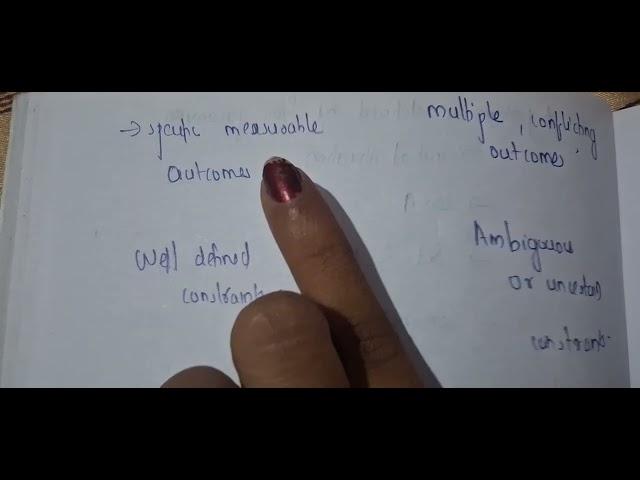 → specific measurable
outcomes
multiple, conflicting
outcomes.
Well defined
constraints
Ambiguous
or uncertain
constraints.